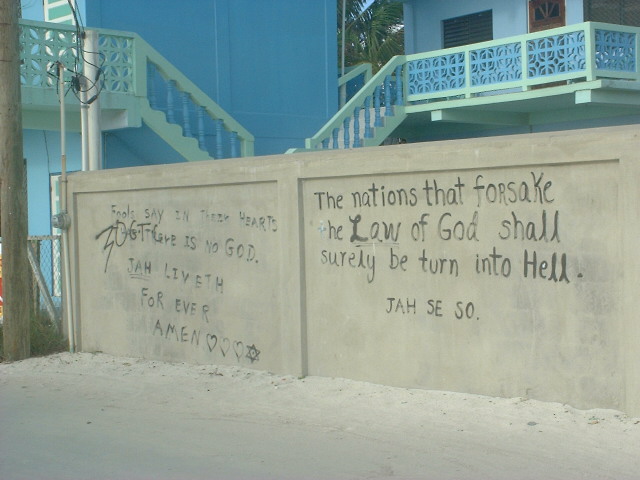 Fools SAY IN THEIR HEARTS
THERE IS NO GOD.
JAH LIVETH
FOR EVER
AMEN
The nations that forsake
the Law of God shall
surely be turn into Hell.
JAH SE SO.